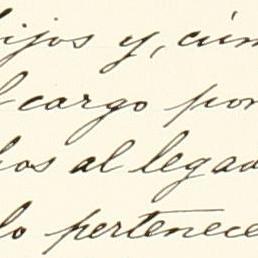 hijos y, cúm
l cargo por
hos al legad
lo pertenece